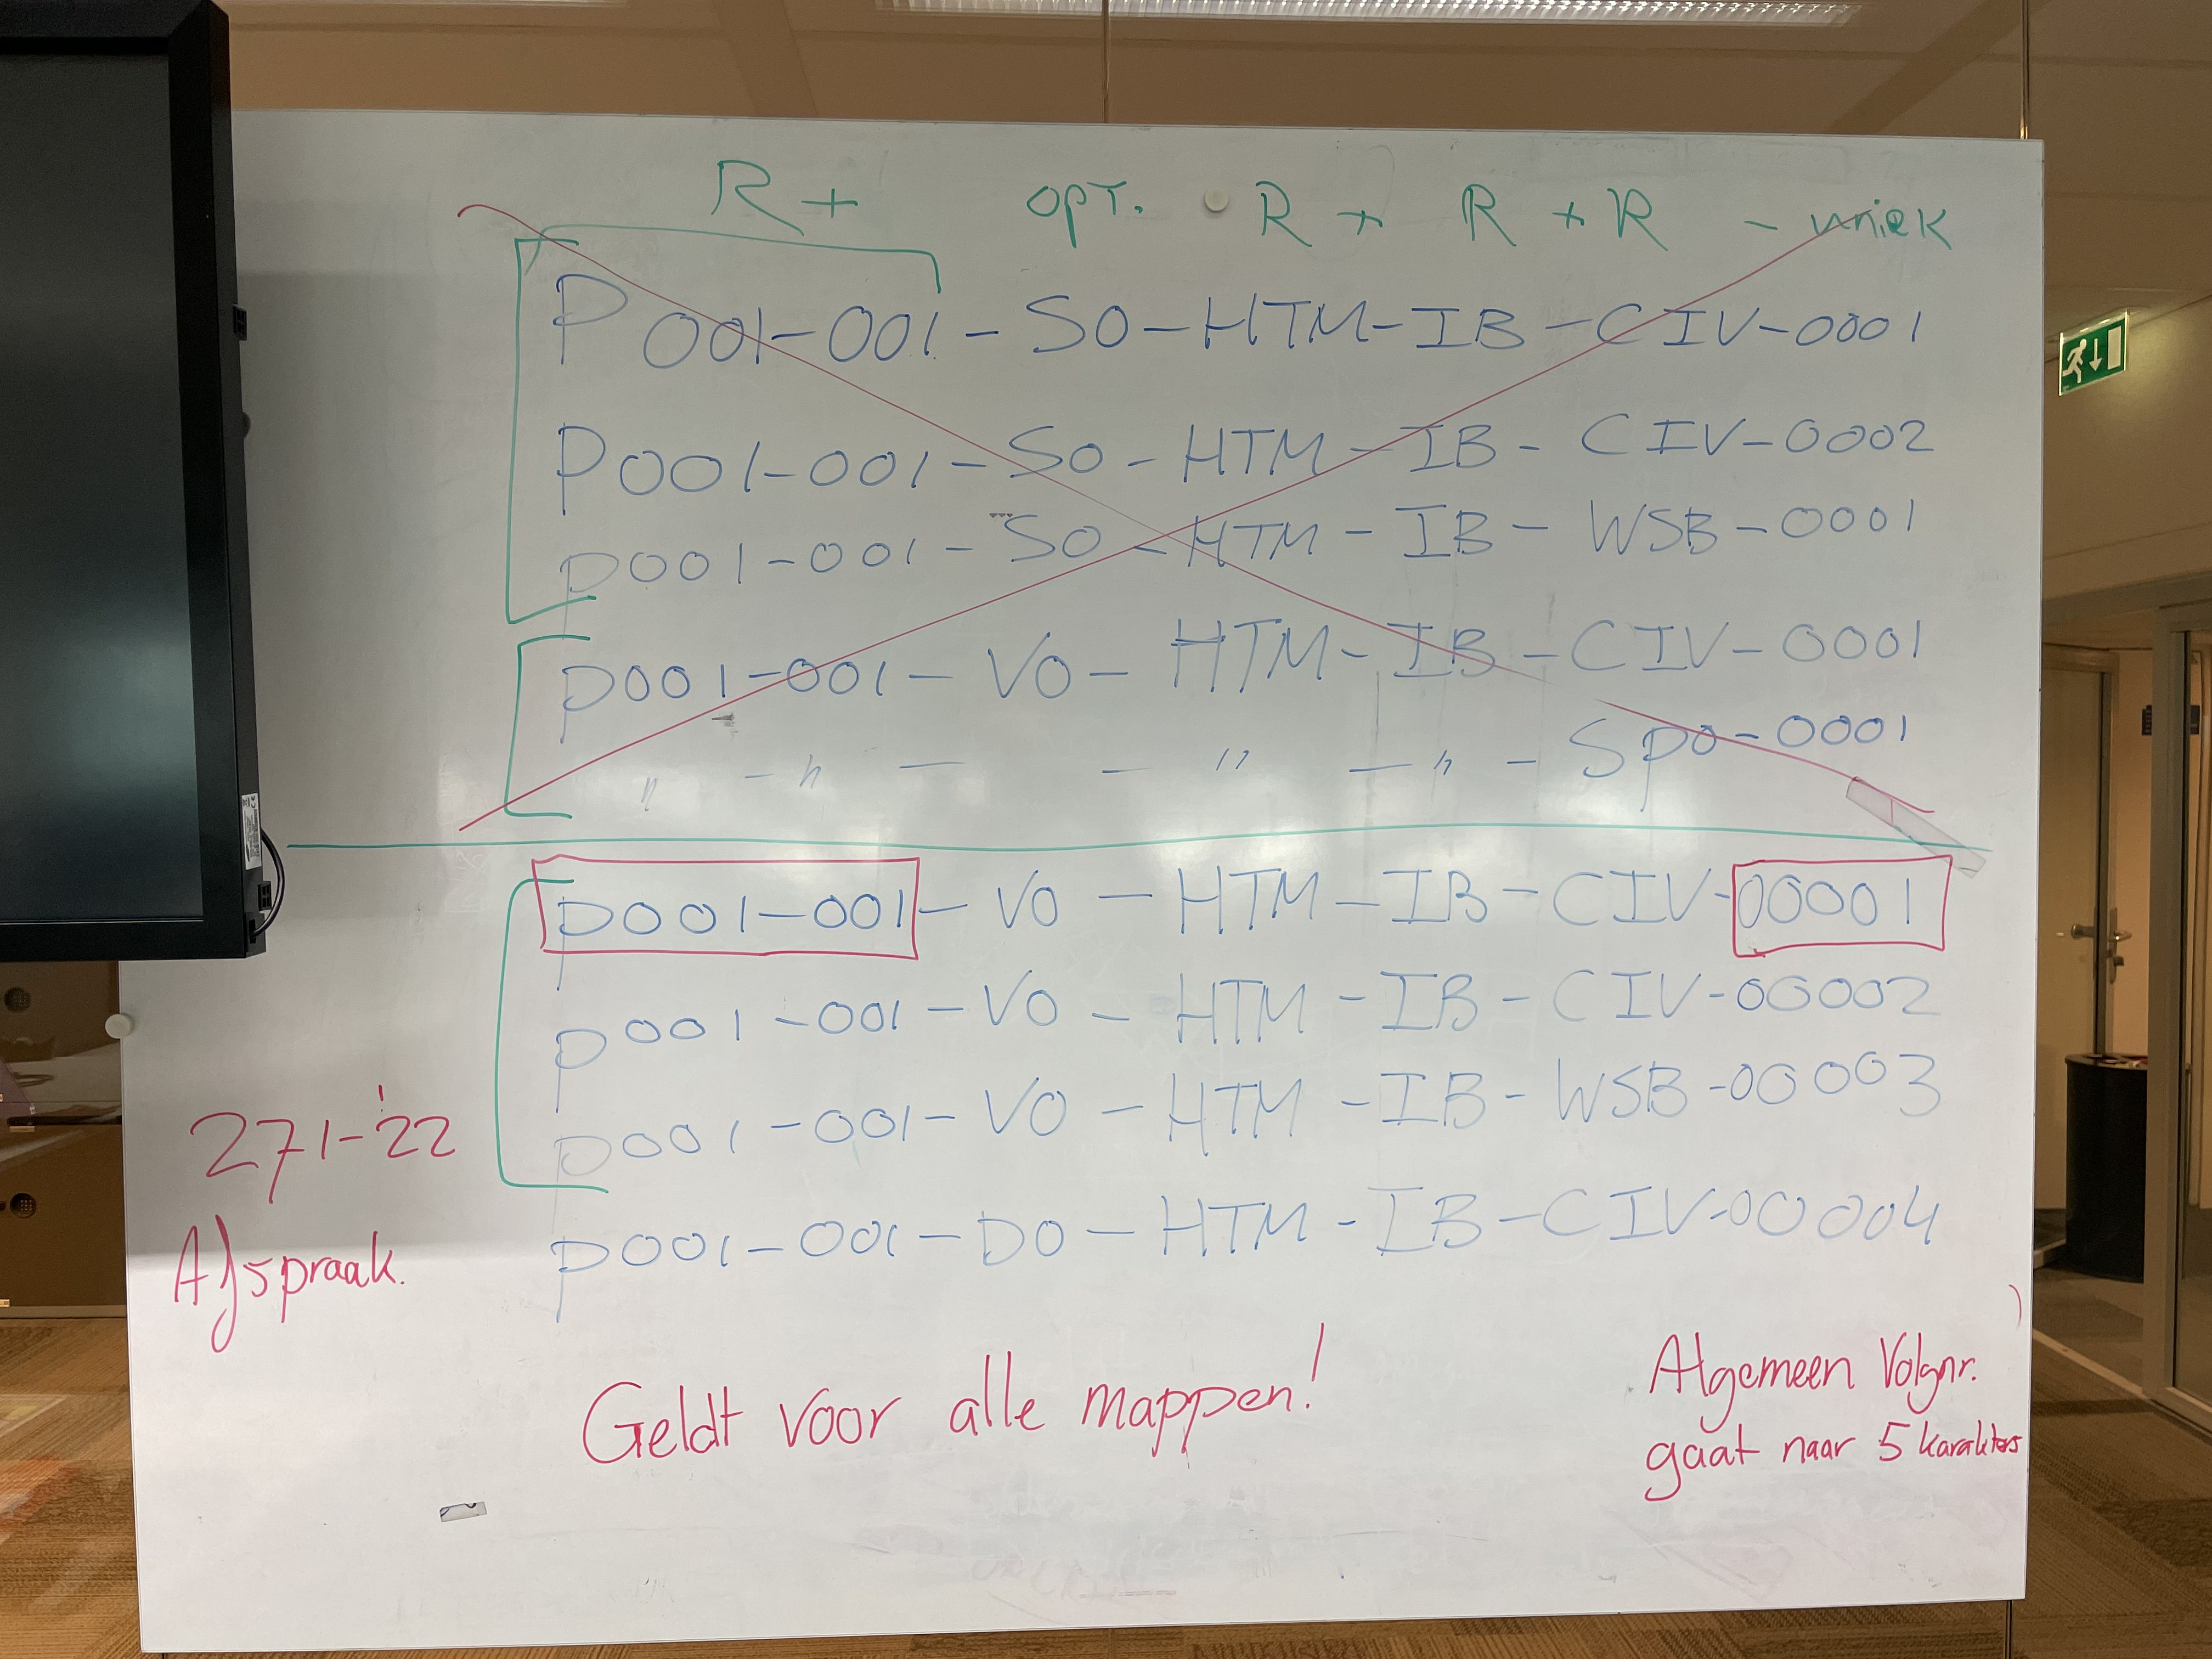 R + opt. R + R + R - uniek
P001-001-SO-HTM-IB-CIV-0001
P001-001-SO-HTM-IB-CIV-0002
P001-001-SO-HTM-IB-WSB-0001
P001-001-VO-HTM-IB-CIV-0001
" - " - - " - " - SPO-0001
P001-001-VO-HTM-IB-CIV-00001
P001-001-VO-HTM-IB-CIV-00002
P001-001-VO-HTM-IB-WSB-00003
P001-001-DO-HTM-IB-CIV-00004
271-'22
Afspraak.
Geldt voor alle mappen!
Algemeen Volgnr.
gaat naar 5 karakters